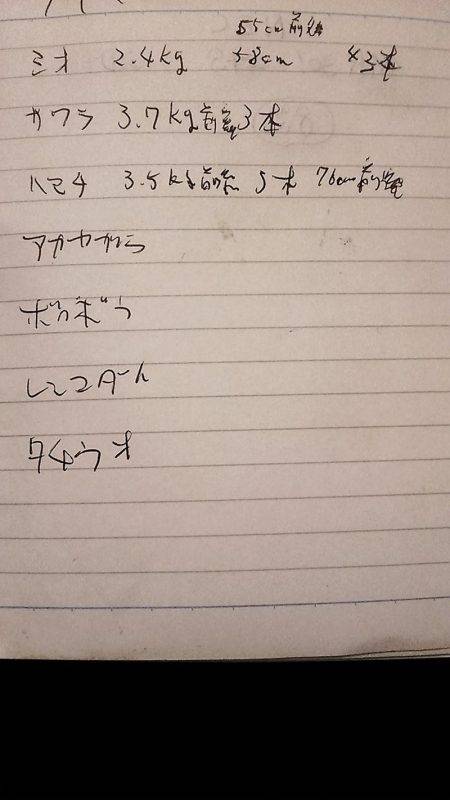 55cm前後
ミオ 2.4kg 58cm 43本
サワラ 3.7kg前後3本
ハマチ 3.5kg前後 5本 76cm前後
アカヤガラ
ホウボウ
レンコダイ
タチウオ